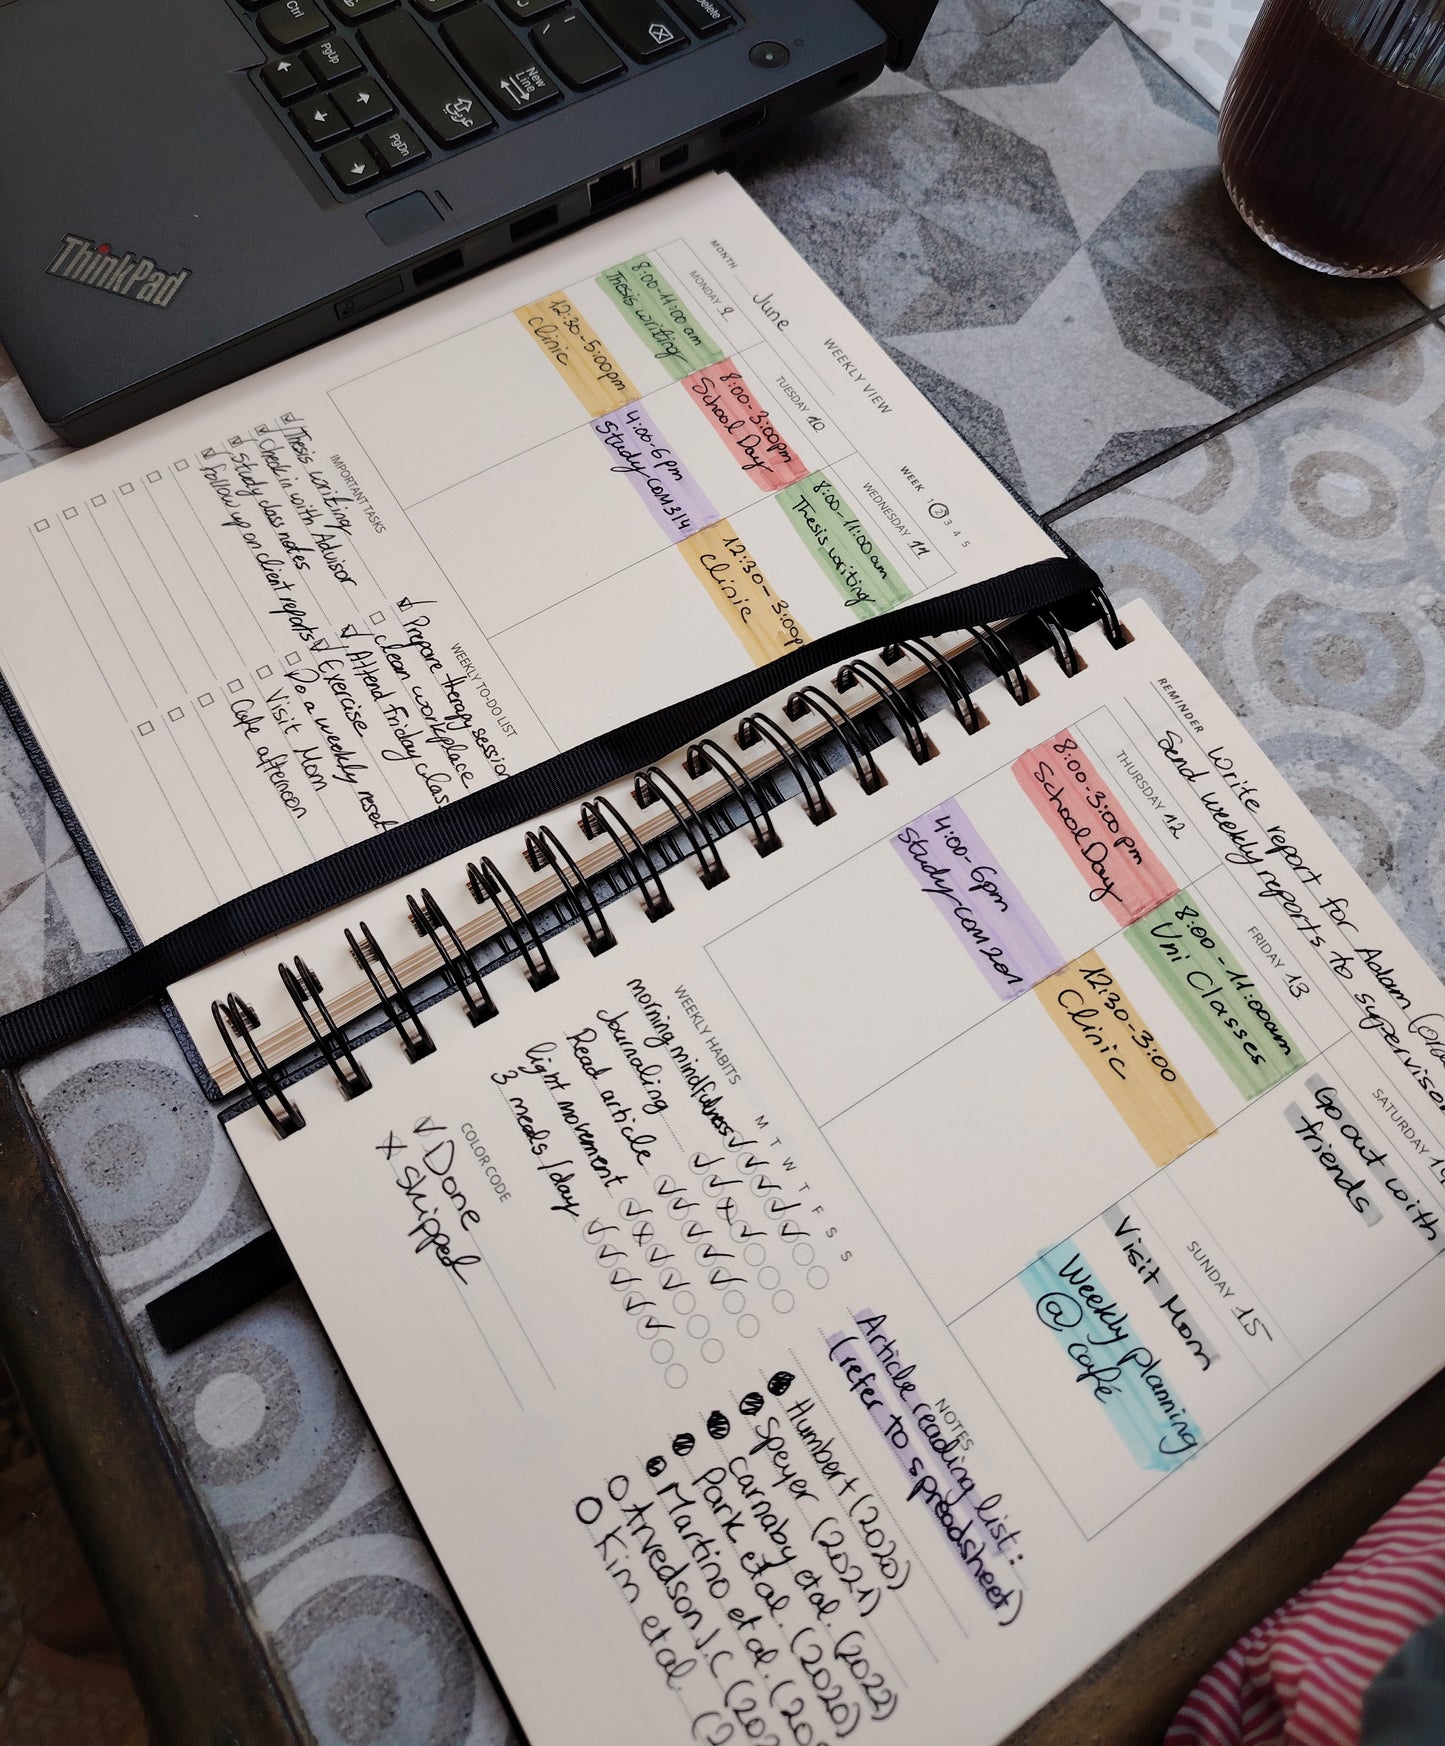 Ctrl
PgUp
PgDn
New
Line
Delete
ThinkPad
WEEKLY VIEW
MONTH June
WEEK 1 2 3 4 5
MONDAY 9
8:00-11:00am
Thesis writing
12:30-5:00pm
Clinic
TUESDAY 10
8:00-3:00pm
School Day
4:00-6pm
Study COM314
WEDNESDAY 11
8:00-11:00am
Thesis writing
12:30-3:00p
Clinic
IMPORTANT TASKS
Thesis writing
Check in with Advisor
Study class notes
Follow up on client reports
WEEKLY TO-DO LIST
Prepare therapy session
Clean workplace
Attend Friday class
Exercise
Do a weekly reset
Visit Mom
Cafe afternoon
REMINDER Write report for Adam
Send weekly reports to supervisor
THURSDAY 12
8:00-3:00pm
School Day
4:00-6pm
Study COM201
FRIDAY 13
8:00-11:00am
Uni Classes
12:30-3:00
Clinic
SATURDAY
Go out with
friends
SUNDAY 15
Visit Mom
Weekly planning
@ café
WEEKLY HABITS
M T W T F S S
morning mindfulness
Journaling
Read article
light movement
3 meals/day
COLOR CODE
✓ Done
x skipped
NOTES
Article reading list:
(refer to spreadsheet)
Humbert (2020)
Speyer (2021)
Carnaby et al. (2022)
Park et al. (2020)
Martino et al.
Arvedson J.C
Kim et al.